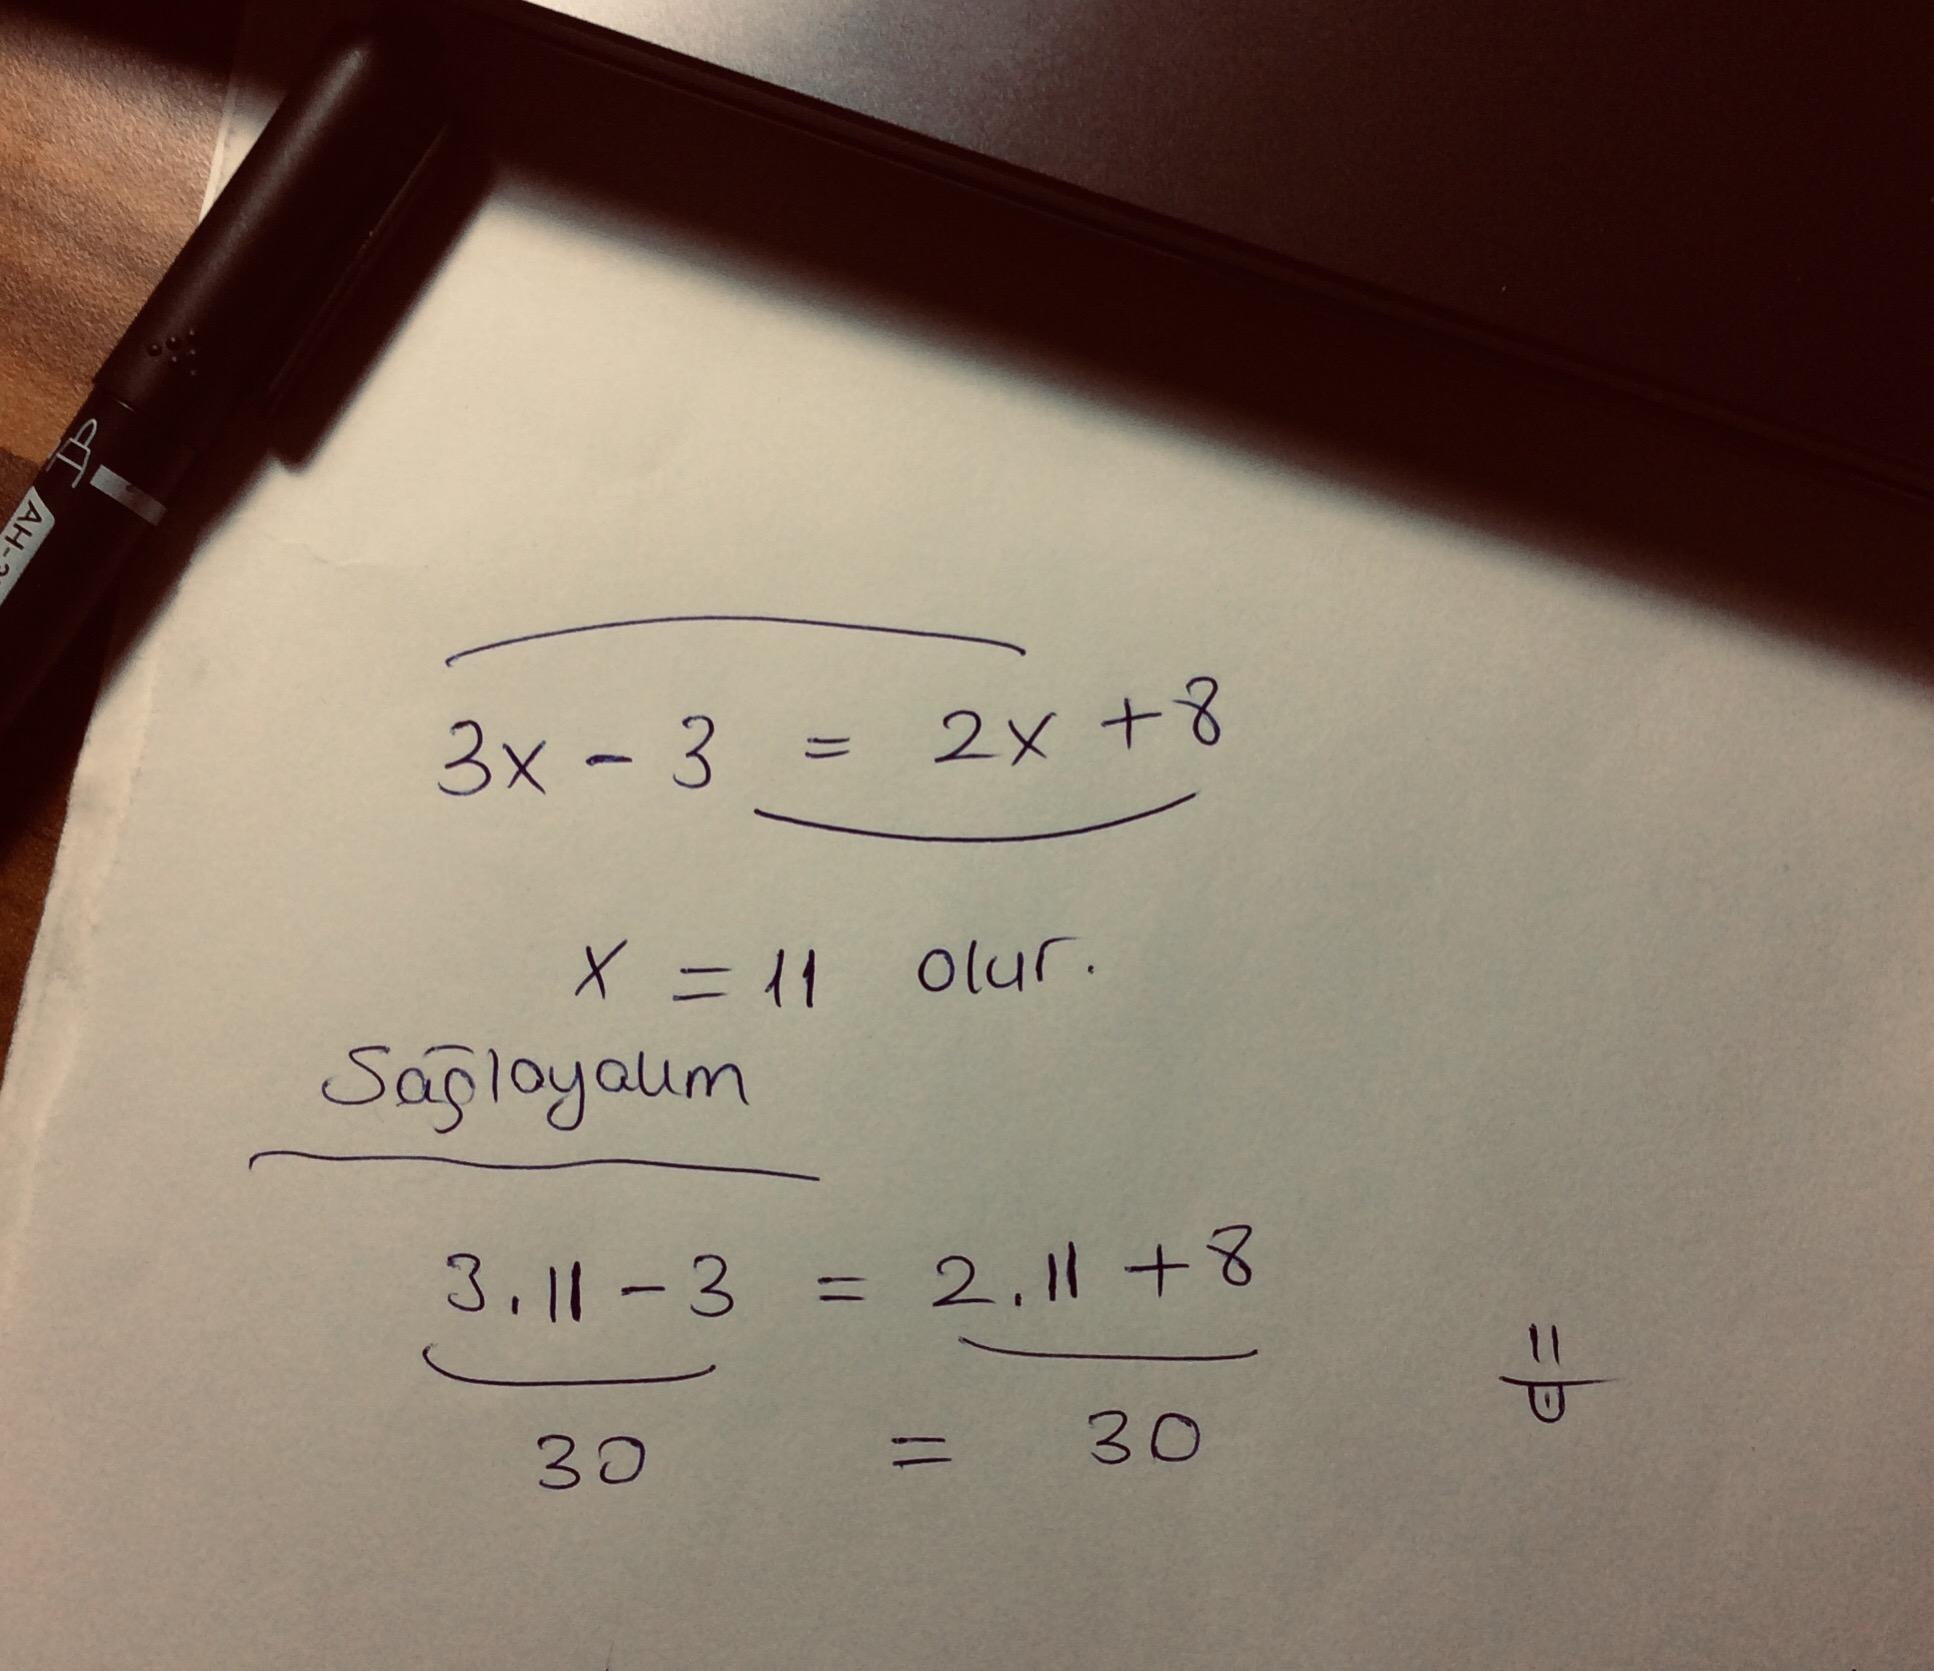 3x - 3 = 2x + 8
x = 11 olur.
Sağlayalım
3.11 - 3 = 2.11 + 8
30 = 30
AH-